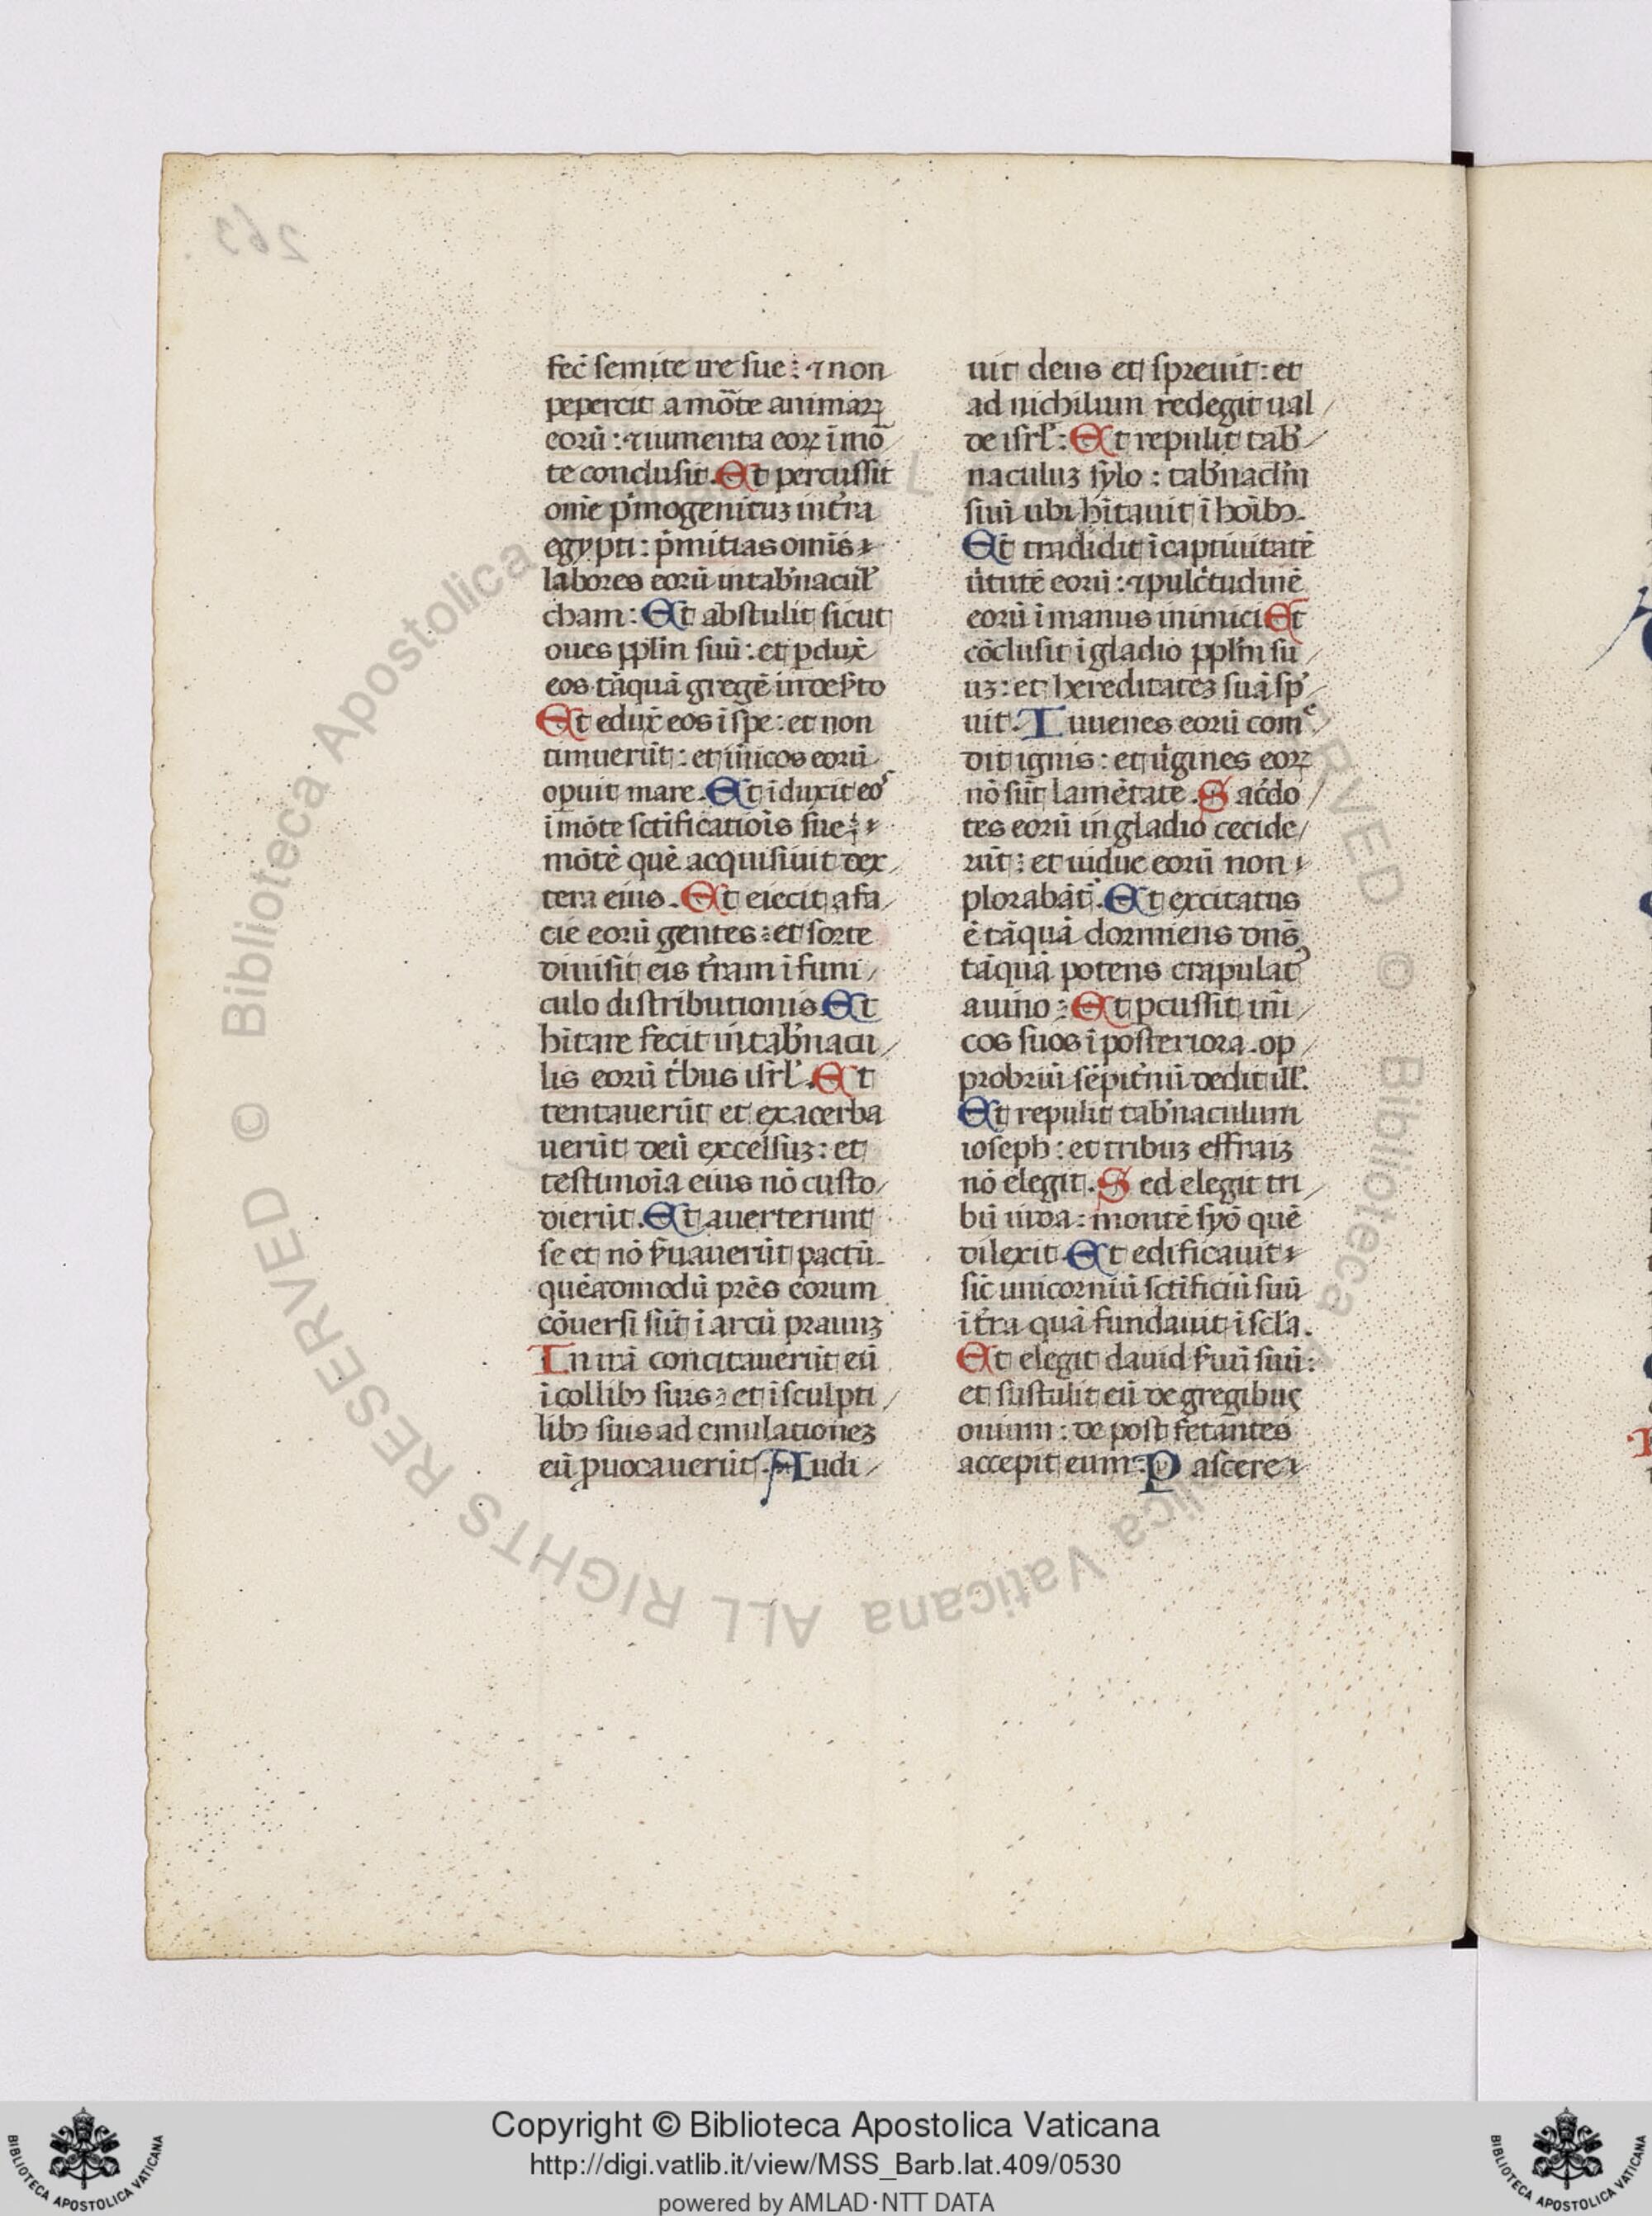 fec̄ semite ire sue : ⁊ non
pepercit a mo̅te animaꝝ
eoru̅ : ⁊ iumenta eoꝝ i̅ mo̅
te conclusit . Et percussit
om̅e pͥmogenituꝫ in t̓ra
egypti : pͥmitias omīs
labores eoru̅ in tab̓nacul̓
cham : Et abstulit sicut
oues pp̅lm suu̅ : et p̲dux̅
eos ta̅qua̅ grege̅ in des̓to
Et edux̅ eos i̅ spe : et non
timueru̅t : et ii̅icos eoru̅
op̲uit mare . Et i̅duxit eos
i̅ mo̅te sc̅tificatio̅is sue :
mo̅te̅ que̅ acquisiuit dex
tera eius . Et eiecit a fa
cie eoru̅ gentes : et sorte
diuisit eis t̓ram i̅ funi
culo distributionis Et
hi̅tare fecit in tab̓nacu
lis eoru̅ tͥbus isrl̓ . Et
tentaueru̅t et exacerba
ueru̅t deu̅ excelsuꝫ : et
testimoi̅a eius no̅ custo
dieru̅t . Et auerterunt
se et no̅ s̓uaueru̅t pactu̅ .
que̅admodu̅ pr̅es eorum
co̅uersi su̅t i̅ arcu̅ prauuꝫ
In ira̅ concitaueru̅t eu̅
i̅ collibꝫ suis : et i̅ sculpti
libꝫ suis ad emulationeꝫ
eu̅ ꝓuocaueru̅t . Audi
uit deus et spreuit : et
ad nichilum redegit ual
de isrl̓ : Et repulit tab̓
naculuꝫ sylo : tab̓nacl̅m
suu̅ ubi hi̅tauit i̅ ho̅ibꝫ .
Et tradidit i̅ captiuitate̅
u̓tute̅ eoru̅ : ⁊ pulc̓tudine̅
eoru̅ i̅ manus inimici Et
co̅clusit i̅ gladio pp̅lm su
uꝫ : et hereditateꝫ sua̅ sp̓
uit . Iuuenes eoru̅ comͤ
dit ignis : et uͥgines eoꝝ
no̅ su̅t lame̅tate . Sac̓do
tes eoru̅ in gladio cecide
ru̅t : et uidue eoru̅ non
ploraba̅t̓ . Et excitatus
e̅ ta̅qua̅ dormiens dn̅s
ta̅qua̅ potens crapulatꝰ
a uino : Et p̲cussit ini̅
cos suos i̅ posteriora . op
probriu̅ se̅pit̓nu̅ dedit ill̓ .
Et repulit tab̓naculum
ioseph : et tribuꝫ effraiꝫ
no̅ elegit . Sed elegit tri
bu̅ iuda : monte̅ syo̅ que̅
dilexit . Et edificauit
sic̅ unicorniu̅ sc̅tificiu̅ suu̅
i̅ t̓ra qua̅ fundauit i̅ sc̅la .
Et elegit dauid s̓uu̅ suu̅ :
et sustulit eu̅ de gregibus
ouium : de post fetantes
accepit eum : Pascere
263
© Biblioteca Apostolica Vaticana ALL RIGHTS RESERVED
Copyright © Biblioteca Apostolica Vaticana
http://digi.vatlib.it/view/MSS_Barb.lat.409/0530
powered by AMLAD·NTT DATA
BIBLIOTECA APOSTOLICA VATICANA
BIBLIOTECA APOSTOLICA VATICANA